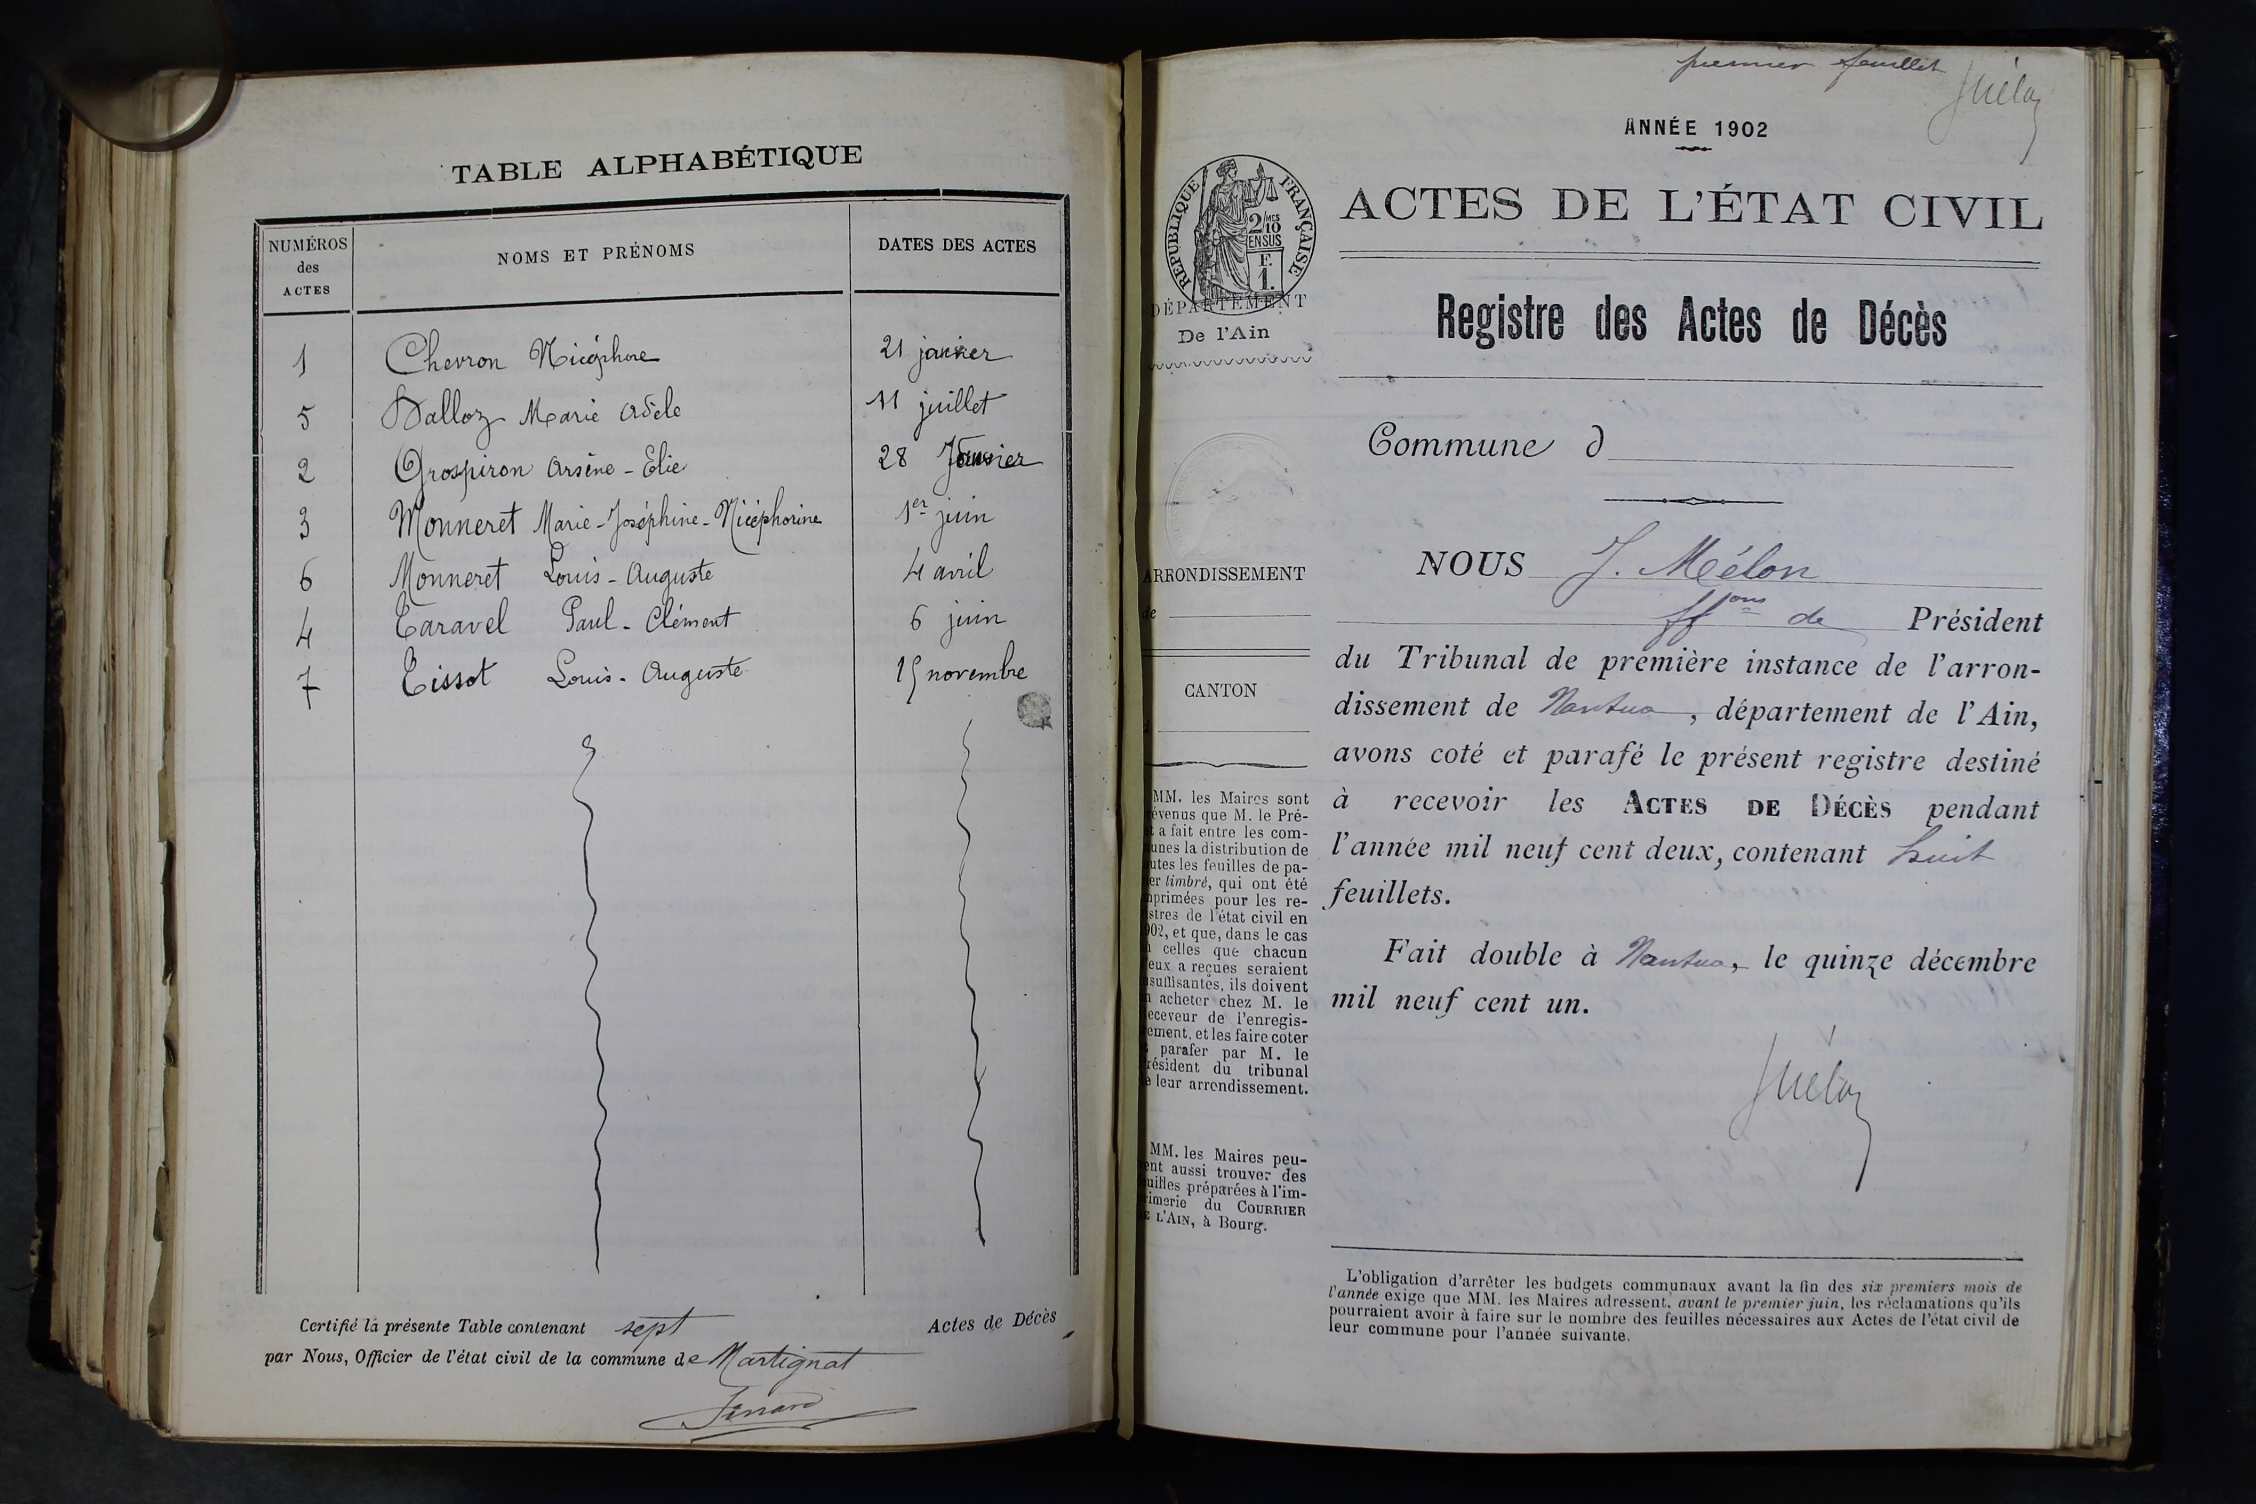 TABLE ALPHABÉTIQUE
NUMÉROS des ACTES
NOMS ET PRÉNOMS
DATES DES ACTES
1 Chevron Nicéphore 21 janvier
5 Dalloz Marie Adèle 11 juillet
2 Grospiron Arsène - Elie 28 Janvier
3 Monneret Marie-Joséphine-Nicéphorine 1er juin
6 Monneret Louis-Auguste 4 avril
4 Taravel Paul-Clément 6 juin
7 Tissot Louis-Auguste 15 novembre
Certifié la présente Table contenant sept Actes de Décès
par Nous, Officier de l'état civil de la commune de Martignat
premier feuillet
ANNÉE 1902
RÉPUBLIQUE FRANÇAISE
2/10 EN SUS
F. 1.
DÉPARTEMENT
De l'Ain
ARRONDISSEMENT
de
CANTON
MM. les Maires sont
révenus que M. le Pré-
t a fait entre les com-
unes la distribution de
utes les feuilles de pa-
er timbré, qui ont été
nprimées pour les re-
stres de l'état civil en
902, et que, dans le cas
celles que chacun
eux a reçues seraient
nsuffisantes, ils doivent
n acheter chez M. le
eceveur de l'enregis-
ement, et les faire coter
parafer par M. le
résident du tribunal
e leur arrondissement.
MM. les Maires peu-
ent aussi trouver des
uilles préparées à l'im-
rimerie du COURRIER
E L'AIN, à Bourg.
ACTES DE L'ÉTAT CIVIL
Registre des Actes de Décès
Commune d
NOUS J. Mélon
ff ons de Président
du Tribunal de première instance de l'arron-
dissement de Nantua, département de l'Ain,
avons coté et parafé le présent registre destiné
à recevoir les ACTES DE DÉCÈS pendant
l'année mil neuf cent deux, contenant huit
feuillets.
Fait double à Nantua, le quinze décembre
mil neuf cent un.
L'obligation d'arrêter les budgets communaux avant la fin des six premiers mois de
l'année exige que MM. les Maires adressent, avant le premier juin, les réclamations qu'ils
pourraient avoir à faire sur le nombre des feuilles nécessaires aux Actes de l'état civil de
leur commune pour l'année suivante.